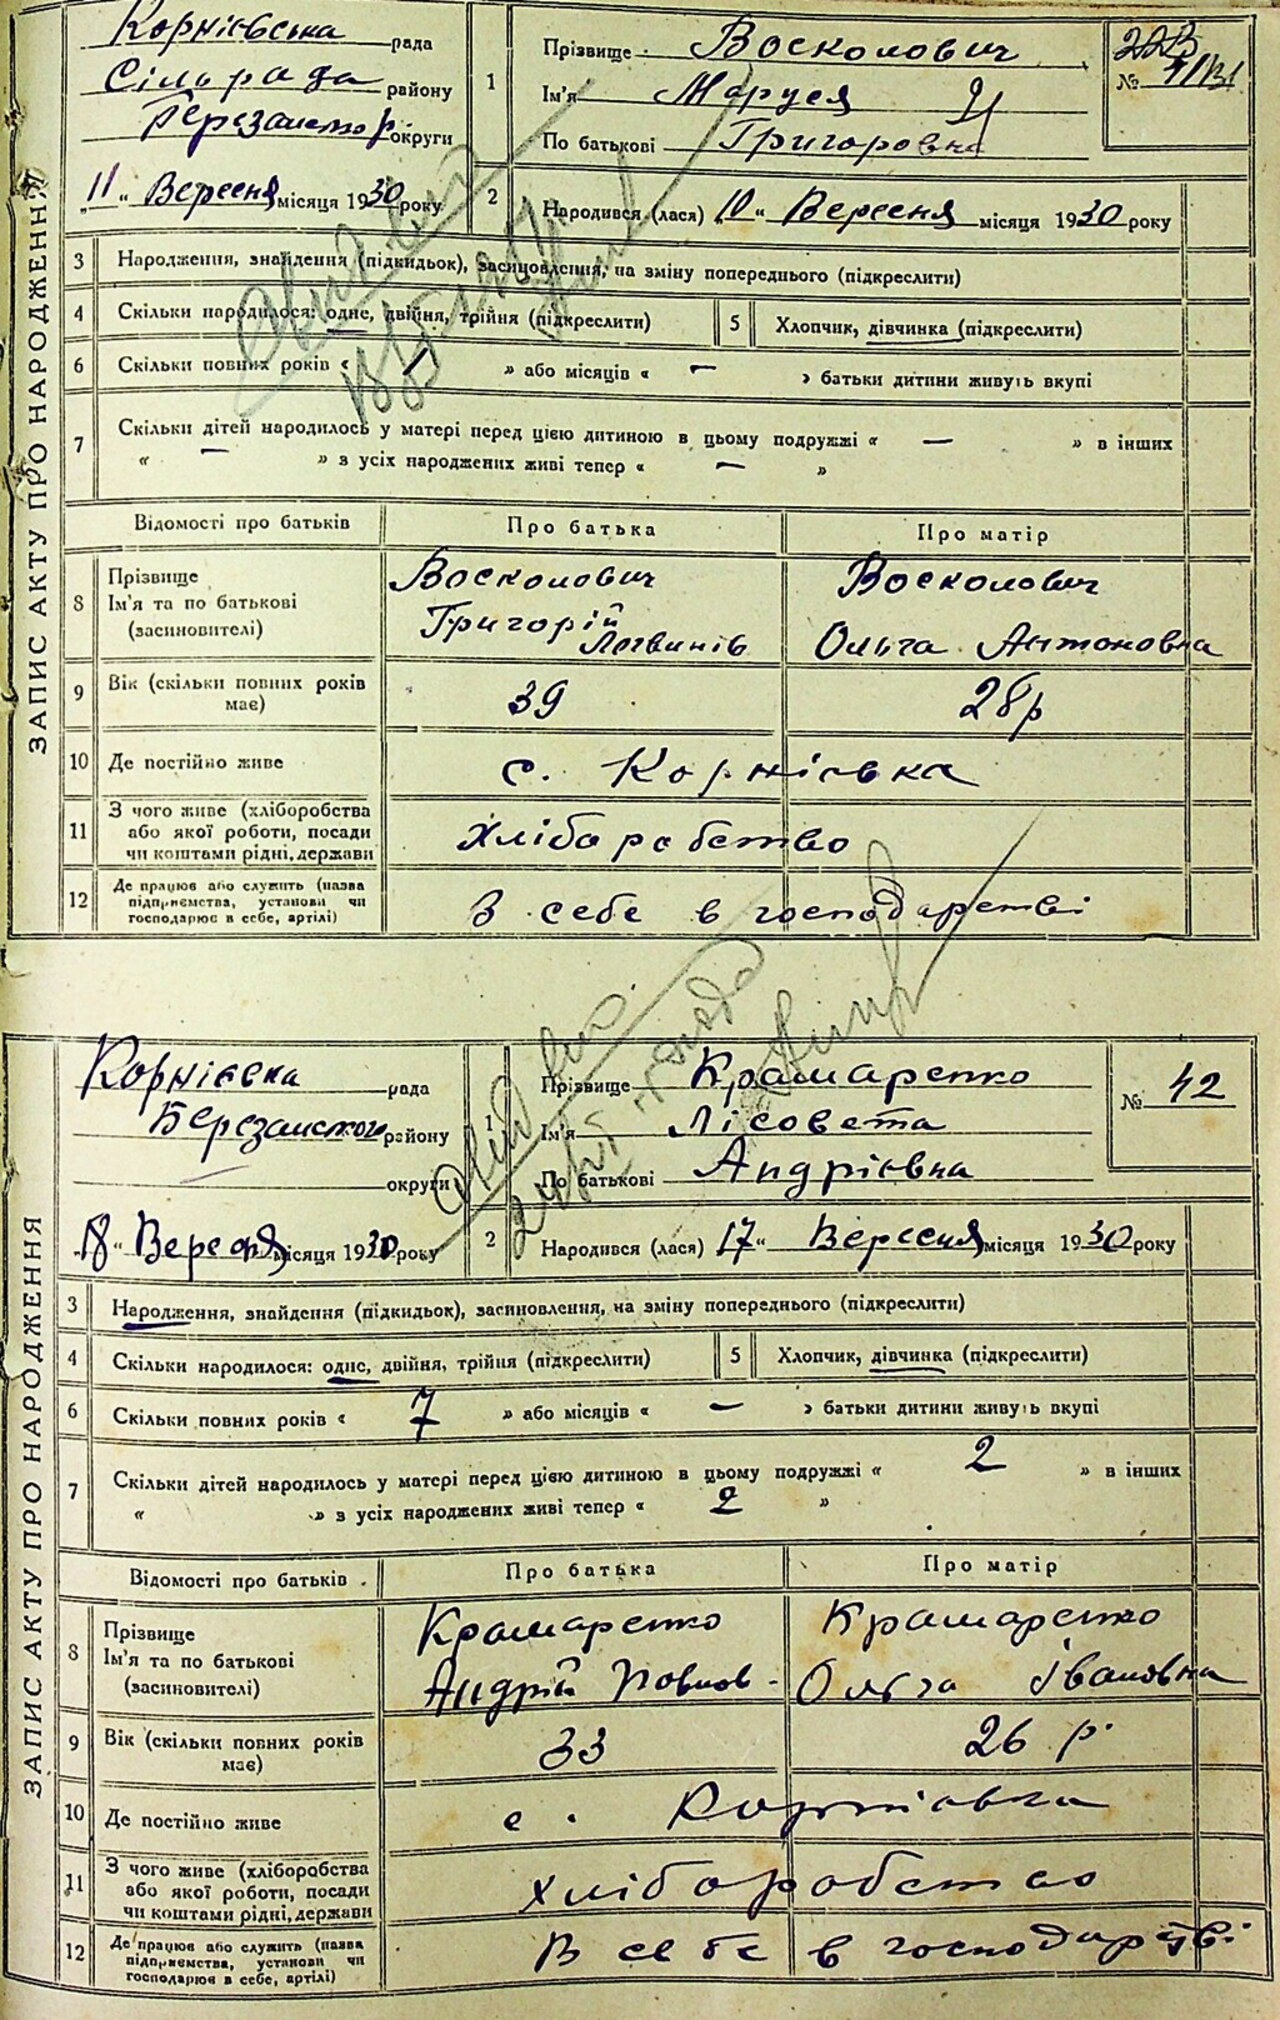 ЗАПИС АКТУ ПРО НАРОДЖЕННЯ
Корнієвська рада
Сільрада району
округи
"11" Вересня місяця 1930 року
1
Прізвище Восколович
Ім'я Маруся
По батькові Григоровна
№ 41/131
2 Народився (лася) "10" Вересня місяця 1930 року
3 Народження, знайдення (підкидьок), засиновлення, на зміну попереднього (підкреслити)
4 Скільки народилося: одне, двійня, трійня (підкреслити)
5 Хлопчик, дівчинка (підкреслити)
6 Скільки повних років « 1 » або місяців « — » батьки дитини живуть вкупі
7 Скільки дітей народилось у матері перед цією дитиною в цьому подружжі « — » в інших
« — » з усіх народжених живі тепер « — »
Відомості про батьків Про батька Про матір
8 Прізвище
Ім'я та по батькові
(засиновителі)
Восколович
Григорій
Логвинів
Восколович
Ольга Антоновна
9 Вік (скільки повних років
має)
39
28р
10 Де постійно живе с. Корнієвка
11 З чого живе (хліборобства
або якої роботи, посади
чи коштами рідні, держави
Хліборобство
12 Де працює або служить (назва
підприємства, установи чи
господарює в себе, артілі)
В себе в господарстві
ЗАПИС АКТУ ПРО НАРОДЖЕННЯ
Корнієвка рада
Березанского району
округи
"18" Вересня місяця 1930 року
1
Прізвище Крамаренко
Ім'я Лісовета
По батькові Андрієвна
№ 42
2 Народився (лася) "17" Вересня місяця 1930 року
3 Народження, знайдення (підкидьок), засиновлення, на зміну попереднього (підкреслити)
4 Скільки народилося: одне, двійня, трійня (підкреслити)
5 Хлопчик, дівчинка (підкреслити)
6 Скільки повних років « 7 » або місяців « — » батьки дитини живуть вкупі
7 Скільки дітей народилось у матері перед цією дитиною в цьому подружжі « 2 » в інших
« » з усіх народжених живі тепер « 2 »
Відомості про батьків Про батька Про матір
8 Прізвище
Ім'я та по батькові
(засиновителі)
Крамаренко
Андрій
Крамаренко
Ольга Івановна
9 Вік (скільки повних років
має)
33
26 р.
10 Де постійно живе с. Корнієвка
11 З чого живе (хліборобства
або якої роботи, посади
чи коштами рідні, держави
Хліборобство
12 Де працює або служить (назва
підприємства, установи чи
господарює в себе, артілі)
В себе в господарстві